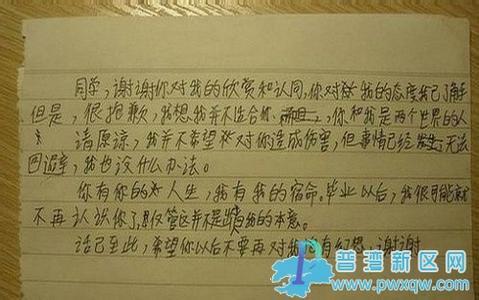 同学，谢谢你对我的欣赏和认同，你对于我的态度我已了解
但是，很抱歉，我想我并不适合你，而且，你和我是两个世界的人
请原谅，我并不希望对你造成伤害，但事情已经发生，无法
回避，我也没什么办法。
你有你的人生，我有我的宿命。毕业以后，我很可能就
不再认识你了，尽管这并不是出自我的本意。
话已至此，希望你以后不要再对我抱有幻想，谢谢
普湾新区网
www.pwxqw.com